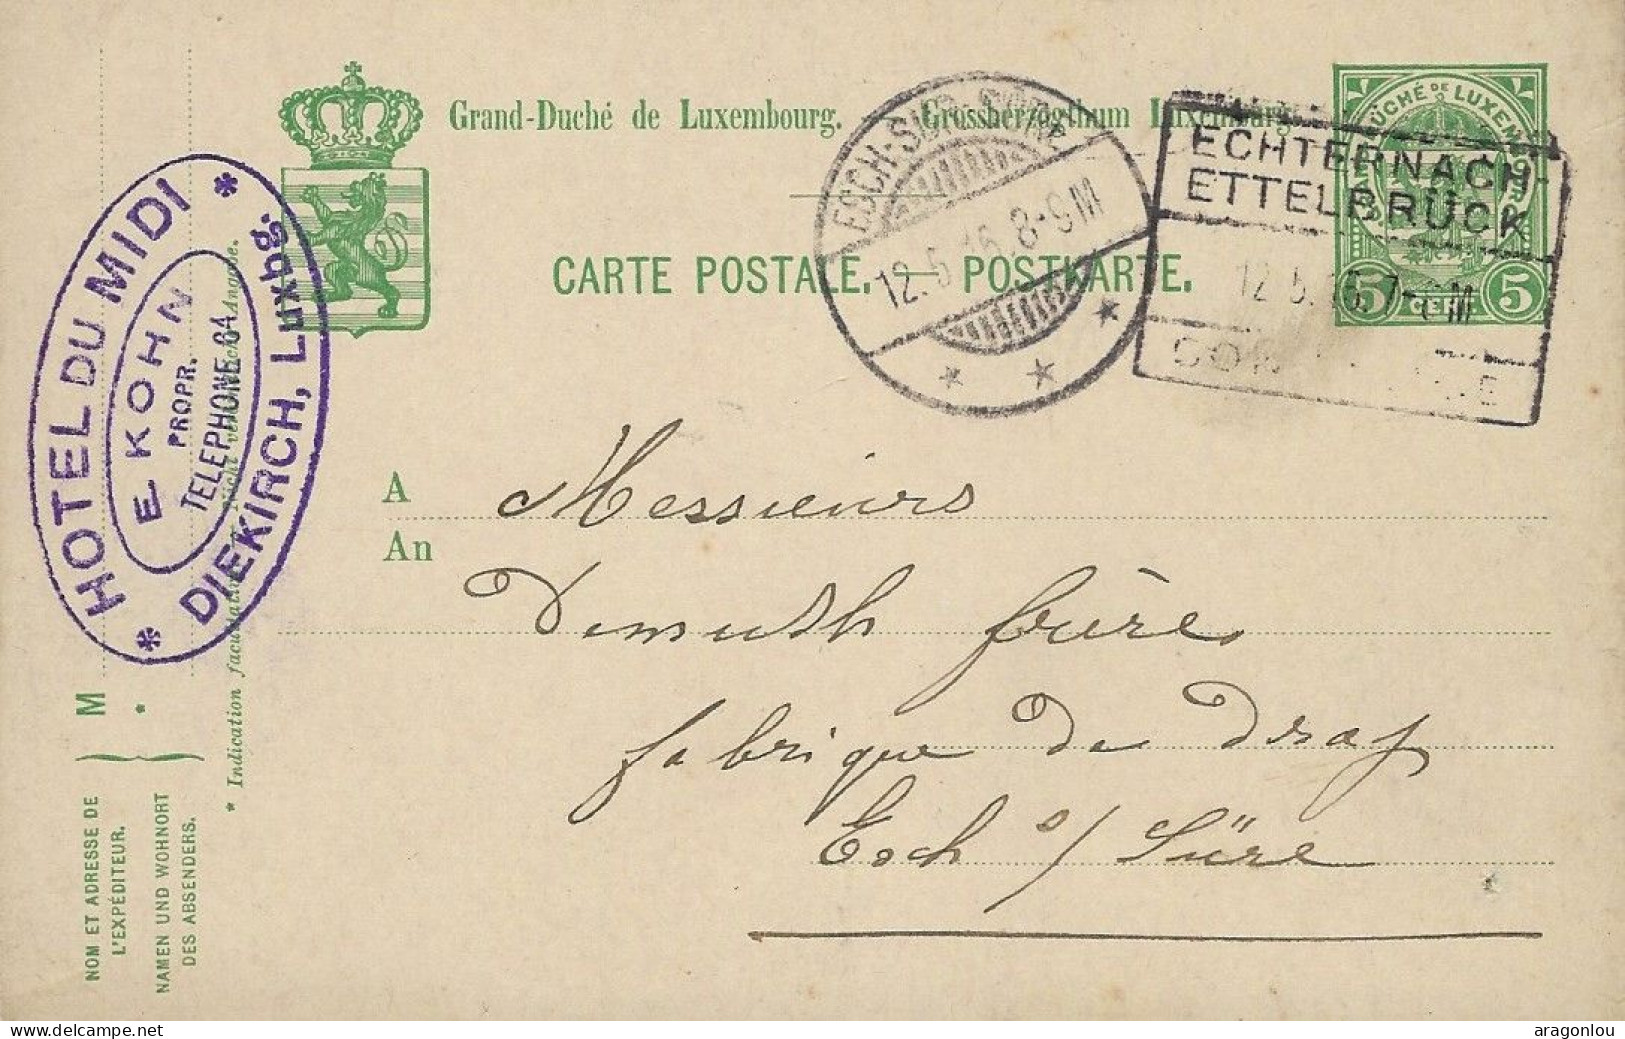 Grand-Duché de Luxembourg. Grossherzogthum Luxemburg.
CARTE POSTALE. — POSTKARTE.
GRAND-DUCHÉ DE LUXEMBOURG
5 CENT. 5
ECHTERNACH-
ETTELBRÜCK
12.5. 7-8M
ESCH-SUR-SÛRE
12.5.16.8-9M
HOTEL DU MIDI
E KOHN
PROPR.
TELEPHONE 64
DIEKIRCH, Luxbg.
A
An
Messieurs
Demuth frères
fabrique de drap
Esch s/ Sûre
M
*
NOM ET ADRESSE DE
L'EXPÉDITEUR.
NAMEN UND WOHNORT
DES ABSENDERS.
* Indication facultative. Nicht Angabe.
delcampe.net
aragonlou